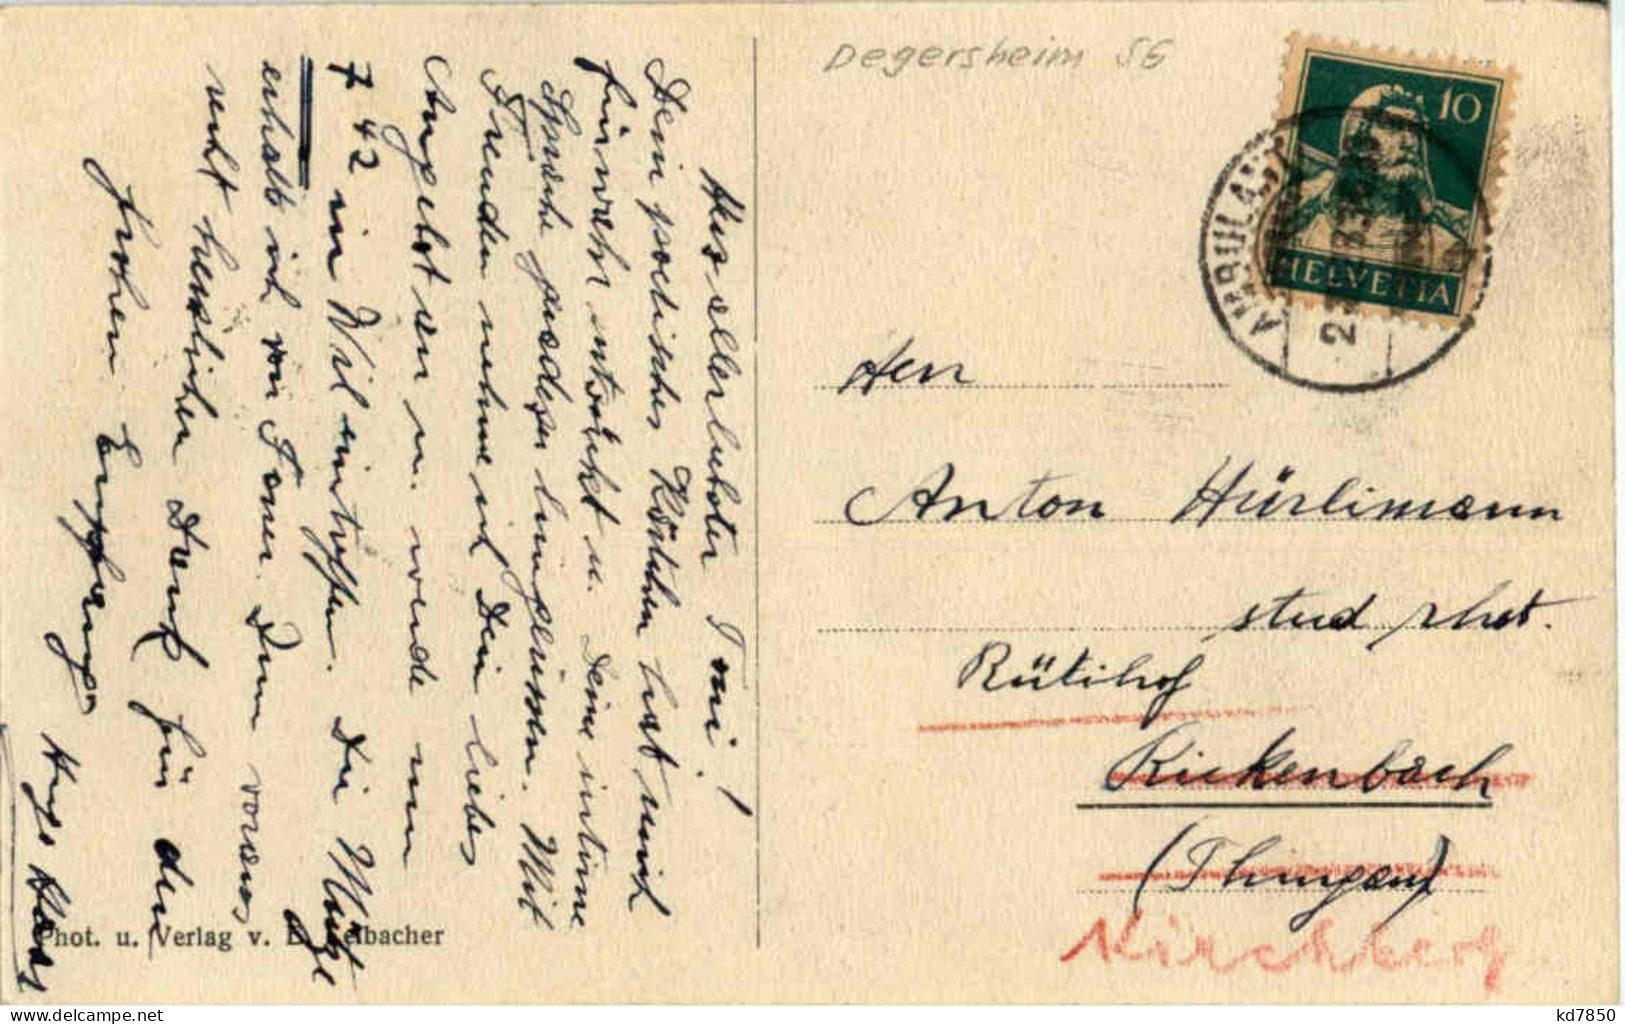 Degersheim SG
10
HELVETIA
AMBULANT
Herrn
Anton Hürlimann
stud rhet.
Rütihof
Rickenbach
(Thurgau)
Kirchberg
Herzallerliebster Toni!
Dein poetisches Kärtchen hat mich
fürwahr u. Deine intime
Sprache
Freuden nehme ich Dein liebes
Angebot an u. werde um
7 42 in Wil eintreffen. Die Mütze
erhalt ich von Dum voraus
recht herzlichen Dank für den
frohen Empfang.
Hugo
Phot. u. Verlag v.
delcampe.net
kd7850